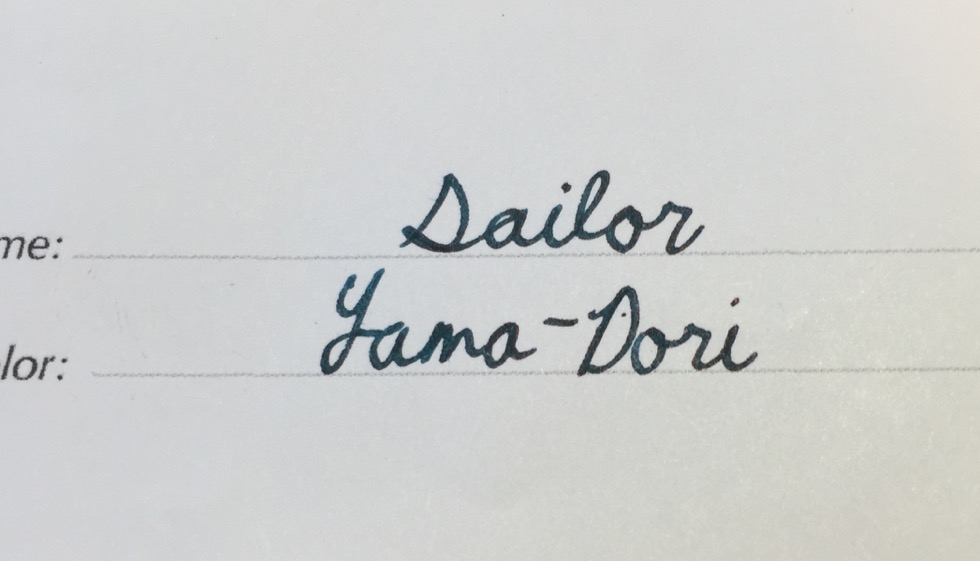 me: Sailor
lor: Yama-Dori